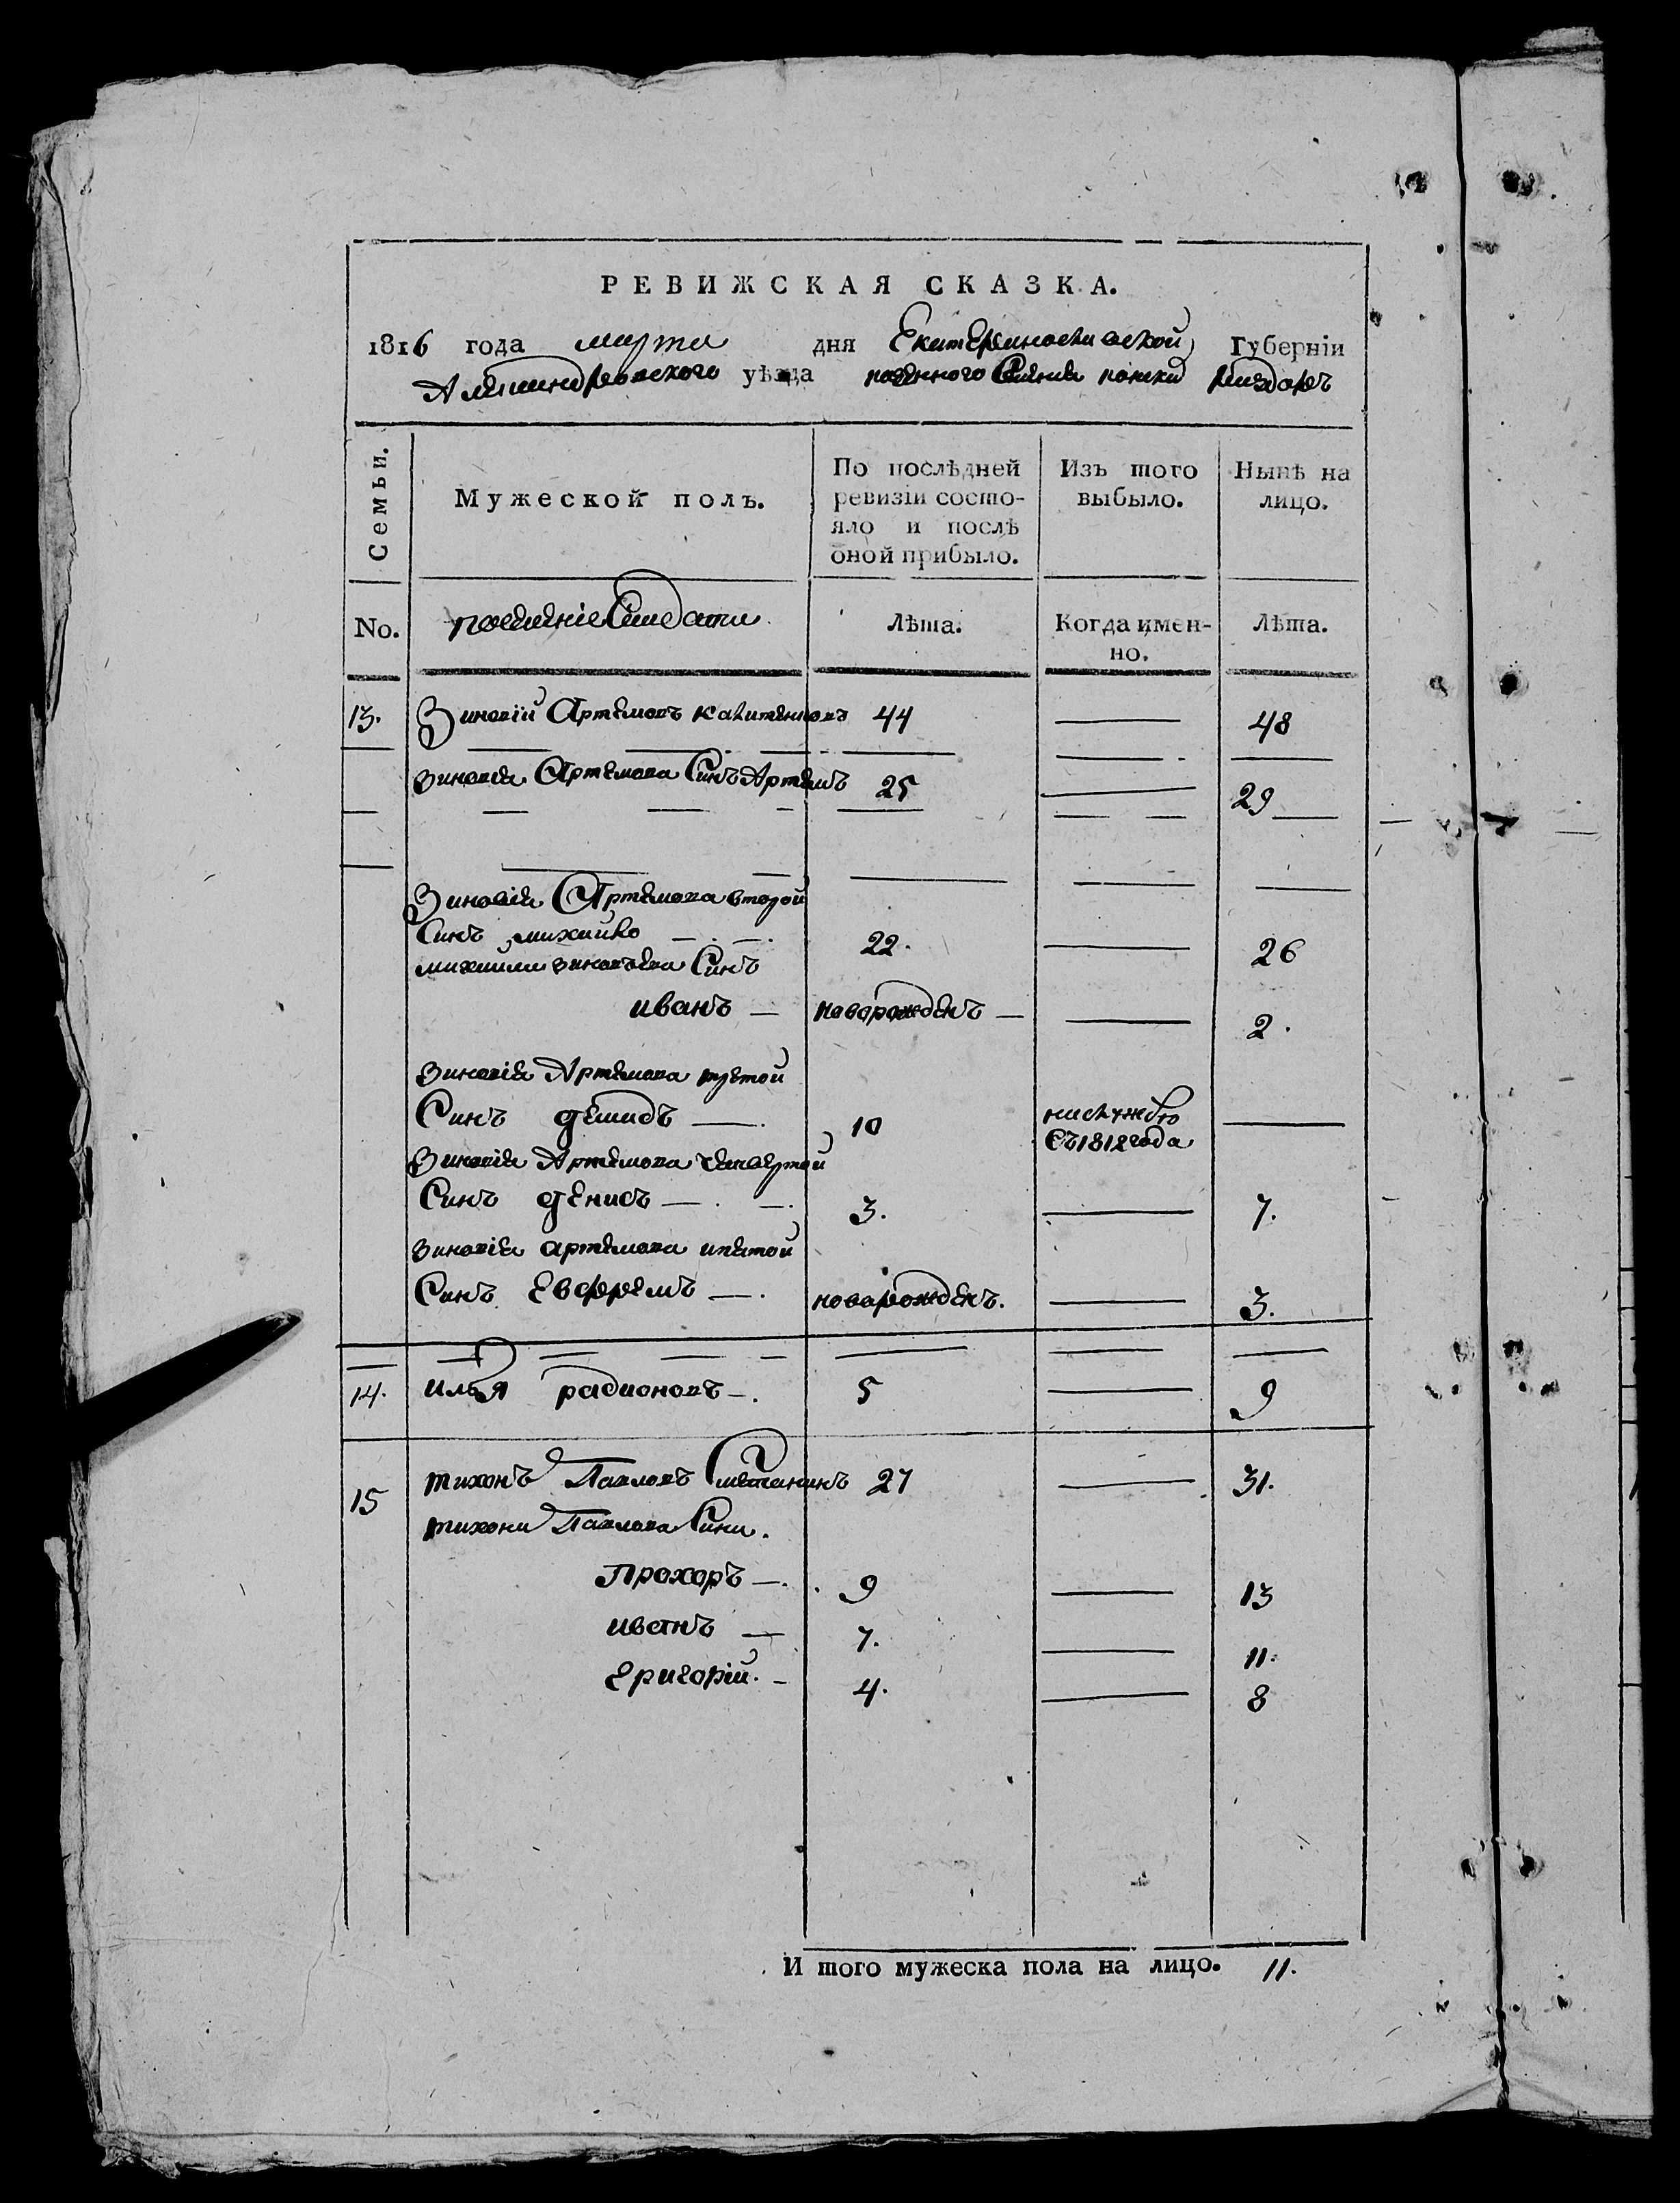 РЕВИЖСКАЯ СКАЗКА.
1816 года марта дня Екатеринославской Губерніи
Александровского уѣзда военного Селенія
Семьи.
Мужеской полъ.
По послѣдней ревизіи состо-
яло и послѣ
оной прибыло.
Изъ того
выбыло.
Нынѣ на
лицо.
No.
Лѣта.
Когда имен-
но.
Лѣта.
13. Зиновій Артемовъ 44 — 48
Зиновія Артемова Синъ Артемъ 25 — 29
Зиновія Артемова второй
Синъ михайло — 22. — 26
михаила зиновъева Синъ
иванъ — новорожденъ — — 2.
Зиновія Артемова третой
Синъ демидъ — 10 насlужбѣ —
Съ 1812 года
Зиновія Артемова четвертой
Синъ денисъ — 3. — 7.
Зиновія артемова пятой
Синъ Евфремъ — новорожденъ. — 3.
14. илья радионовъ — 5 — 9
15 тихонъ Павловъ Сметанинъ 27 — 31.
тихона Павлова Сини.
Прохоръ — 9 — 13
иванъ — 7. — 11.
Григорій. — 4. — 8
И того мужеска пола на лицо. 11.